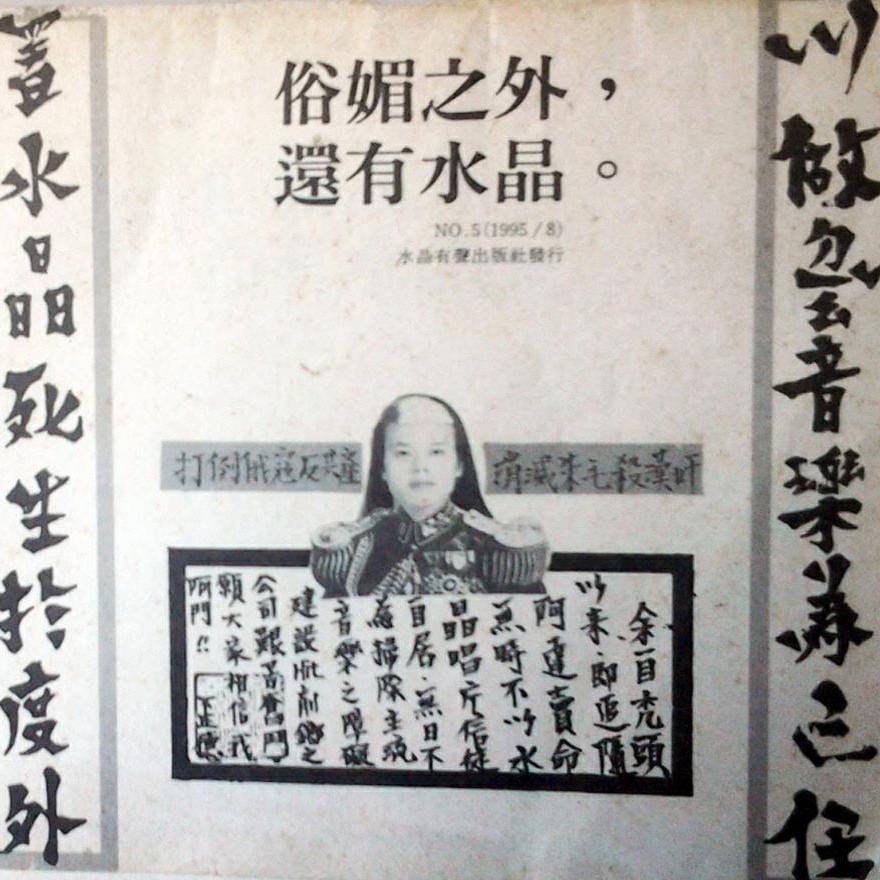 俗媚之外，
還有水晶。
NO.5(1995/8)
水晶有聲出版社發行
以做忽云音樂為己任
置水晶死生於度外
打倒俄寇反共產
消滅朱毛殺漢奸
余自禿頭
以來，即追隨
阿達賣命
無時不以水
晶唱片信徒
自居，無日不
為掃除主流
音樂之障礙
建設
之
公司艱苦奮鬥
願大家相信我
阿門!!